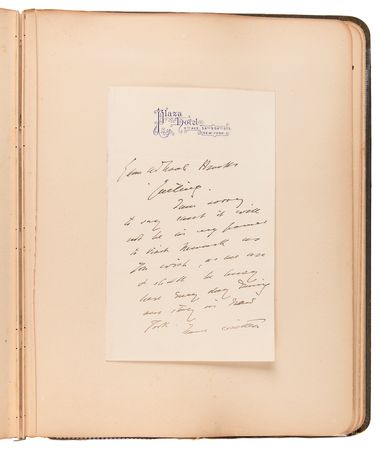 Plaza
Hotel
5th Ave, 58th & 59th Sts
New York
Thanks
I am sorry
to say that it will
not be in my power
to visit Newark as
you wish, as we are
& shall be busy
here every day during
our stay in New
York.